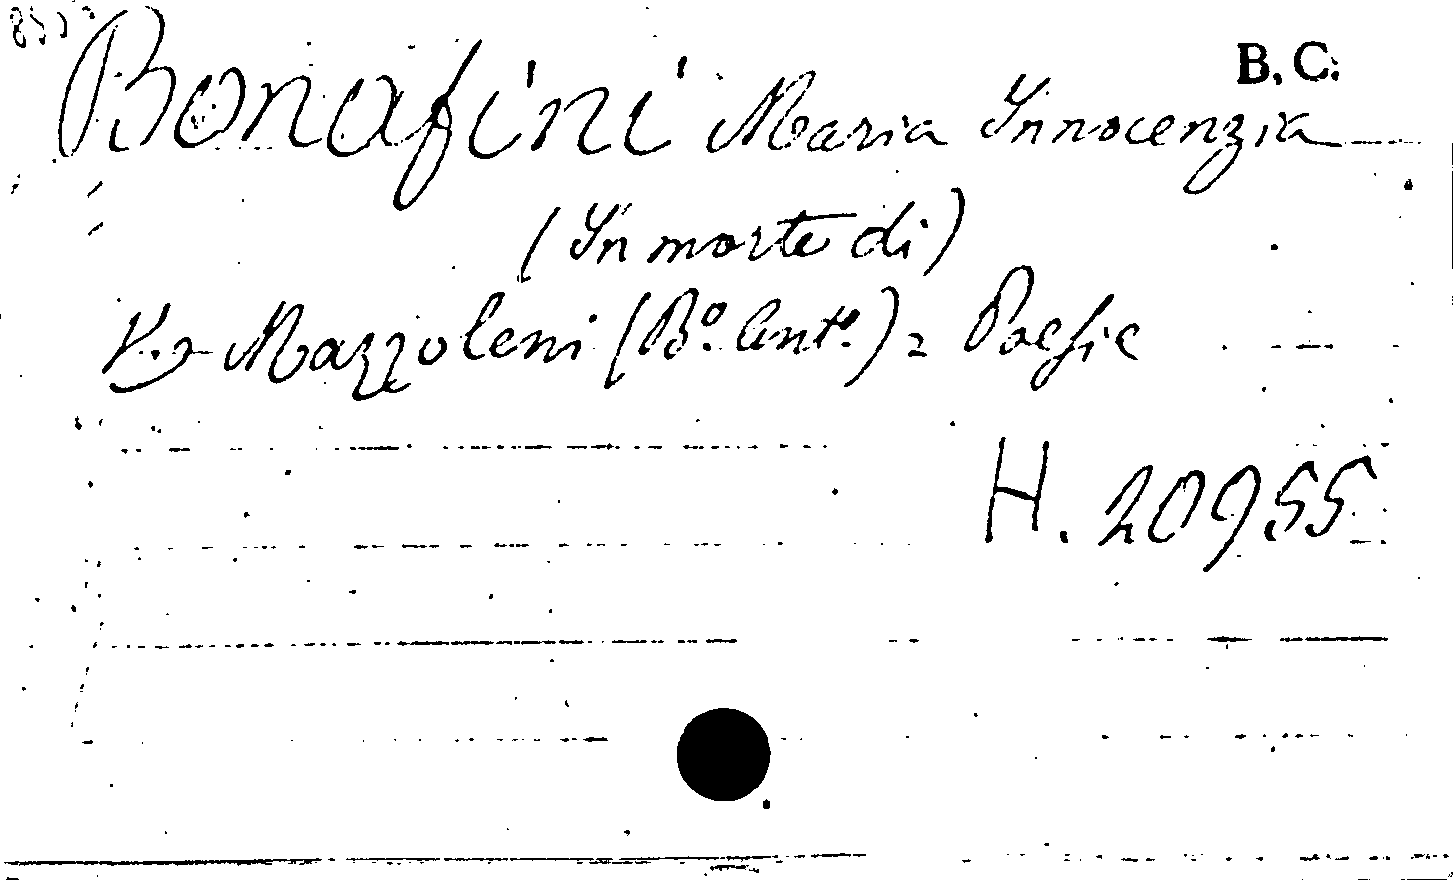 B. C.
Bonafini Maria Innocenzia
(In morte di)
V. Mazzoleni (Bº. Antº.) = Poesie
H. 20955